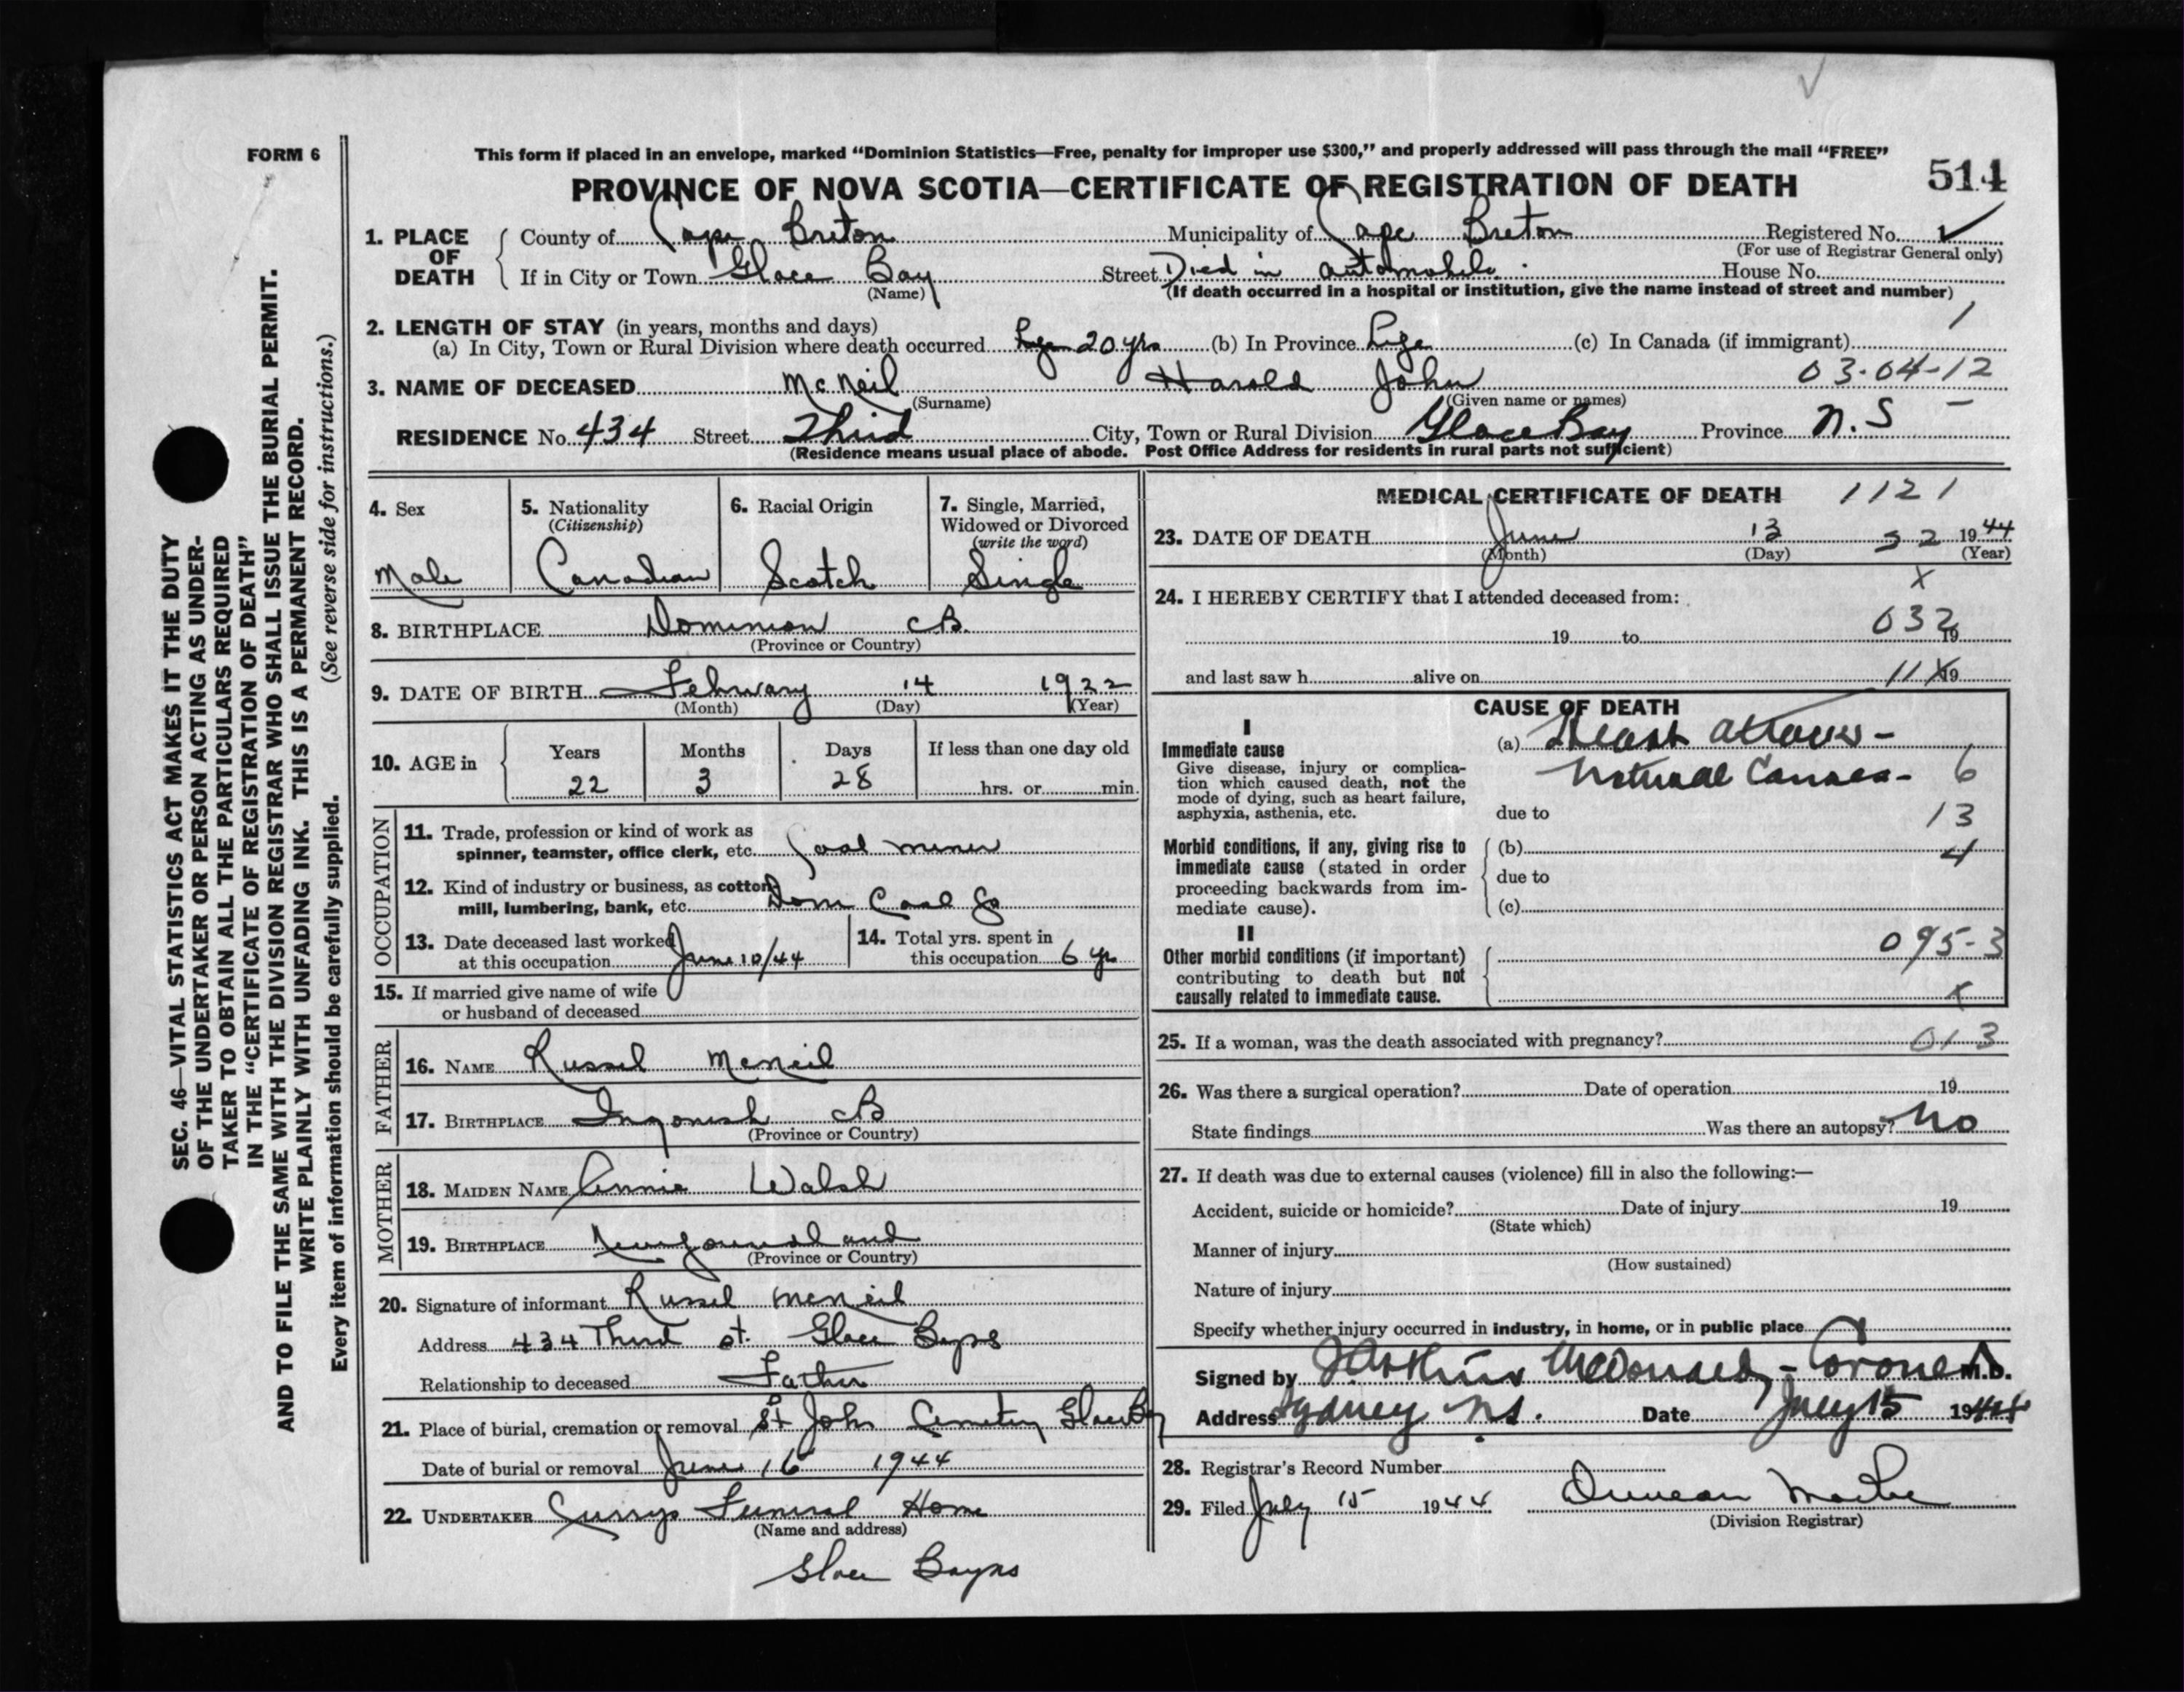 FORM 6
This form if placed in an envelope, marked “Dominion Statistics—Free, penalty for improper use $300,” and properly addressed will pass through the mail “FREE”
514
PROVINCE OF NOVA SCOTIA—CERTIFICATE OF REGISTRATION OF DEATH
1. PLACE OF DEATH
County of Cape Breton Municipality of Cape Breton Registered No.
(For use of Registrar General only)
If in City or Town Glace Bay Street Died in automobile. House No.
(Name) (If death occurred in a hospital or institution, give the name instead of street and number)
2. LENGTH OF STAY (in years, months and days) 1
(a) In City, Town or Rural Division where death occurred 20 yrs (b) In Province Life (c) In Canada (if immigrant)
3. NAME OF DECEASED McNeil Harold John 03-04-12
(Surname) (Given name or names)
RESIDENCE No. 434 Street Third City, Town or Rural Division Glace Bay Province N.S
(Residence means usual place of abode. Post Office Address for residents in rural parts not sufficient)
4. Sex 5. Nationality (Citizenship) 6. Racial Origin 7. Single, Married, Widowed or Divorced (write the word)
Male Canadian Scotch Single
8. BIRTHPLACE Dominion CB.
(Province or Country)
9. DATE OF BIRTH February 14 1922
(Month) (Day) (Year)
10. AGE in Years Months Days If less than one day old
22 3 28 hrs. or min.
OCCUPATION
11. Trade, profession or kind of work as
spinner, teamster, office clerk, etc. Coal miner
12. Kind of industry or business, as cotton
mill, lumbering, bank, etc. Dom Coal Co
13. Date deceased last worked
at this occupation June 10/44
14. Total yrs. spent in
this occupation 6 yr
15. If married give name of wife
or husband of deceased
FATHER
16. NAME Russel McNeil
17. BIRTHPLACE Ingonish CB
(Province or Country)
MOTHER
18. MAIDEN NAME Annie Walsh
19. BIRTHPLACE Newfoundland
(Province or Country)
20. Signature of informant Russel McNeil
Address 434 Third st. Glace Bay NS
Relationship to deceased Father
21. Place of burial, cremation or removal St John Cemetery Glace Bay
Date of burial or removal June 16 1944
22. UNDERTAKER Currys Funeral Home
(Name and address)
Glace Bay NS
MEDICAL CERTIFICATE OF DEATH 1121
23. DATE OF DEATH June 13 32 1944
(Month) (Day) (Year)
24. I HEREBY CERTIFY that I attended deceased from: X
19 to 032 19
and last saw h alive on 11X 19
CAUSE OF DEATH
I
Immediate cause
Give disease, injury or complication which caused death, not the mode of dying, such as heart failure, asphyxia, asthenia, etc.
(a) Heart attack -
Natural Causes - 6
due to 13
Morbid conditions, if any, giving rise to immediate cause (stated in order proceeding backwards from immediate cause).
(b) 4
due to
(c)
II
Other morbid conditions (if important) contributing to death but not causally related to immediate cause.
095-3
X
25. If a woman, was the death associated with pregnancy? 013
26. Was there a surgical operation? Date of operation 19
State findings Was there an autopsy? No
27. If death was due to external causes (violence) fill in also the following:—
Accident, suicide or homicide? Date of injury 19
(State which)
Manner of injury
(How sustained)
Nature of injury
Specify whether injury occurred in industry, in home, or in public place
Signed by J Arthur McDonald, - Coroner M.D.
Address Sydney N.S. Date July 15 1944
28. Registrar's Record Number
29. Filed July 15 1944 Duncan
(Division Registrar)
SEC. 46—VITAL STATISTICS ACT MAKES IT THE DUTY
OF THE UNDERTAKER OR PERSON ACTING AS UNDER-
TAKER TO OBTAIN ALL THE PARTICULARS REQUIRED
IN THE “CERTIFICATE OF REGISTRATION OF DEATH”
AND TO FILE THE SAME WITH THE DIVISION REGISTRAR WHO SHALL ISSUE THE BURIAL PERMIT.
WRITE PLAINLY WITH UNFADING INK. THIS IS A PERMANENT RECORD.
Every item of information should be carefully supplied. (See reverse side for instructions.)